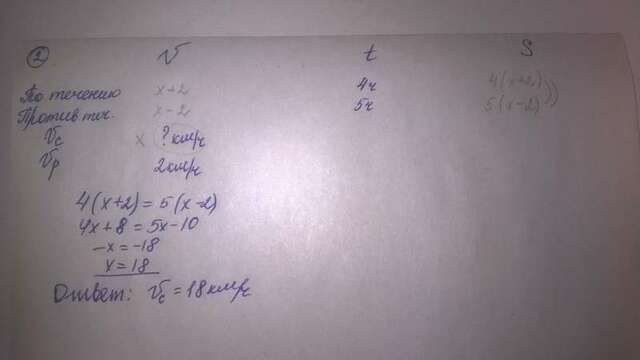 2 V t S
По течению x+2 4ч 4(x+2)
Против теч. x-2 5ч 5(x-2)
Vc x ? км/ч
Vр 2км/ч
4(x+2) = 5(x-2)
4x+8 = 5x-10
-x = -18
x = 18
Ответ: Vc = 18 км/ч